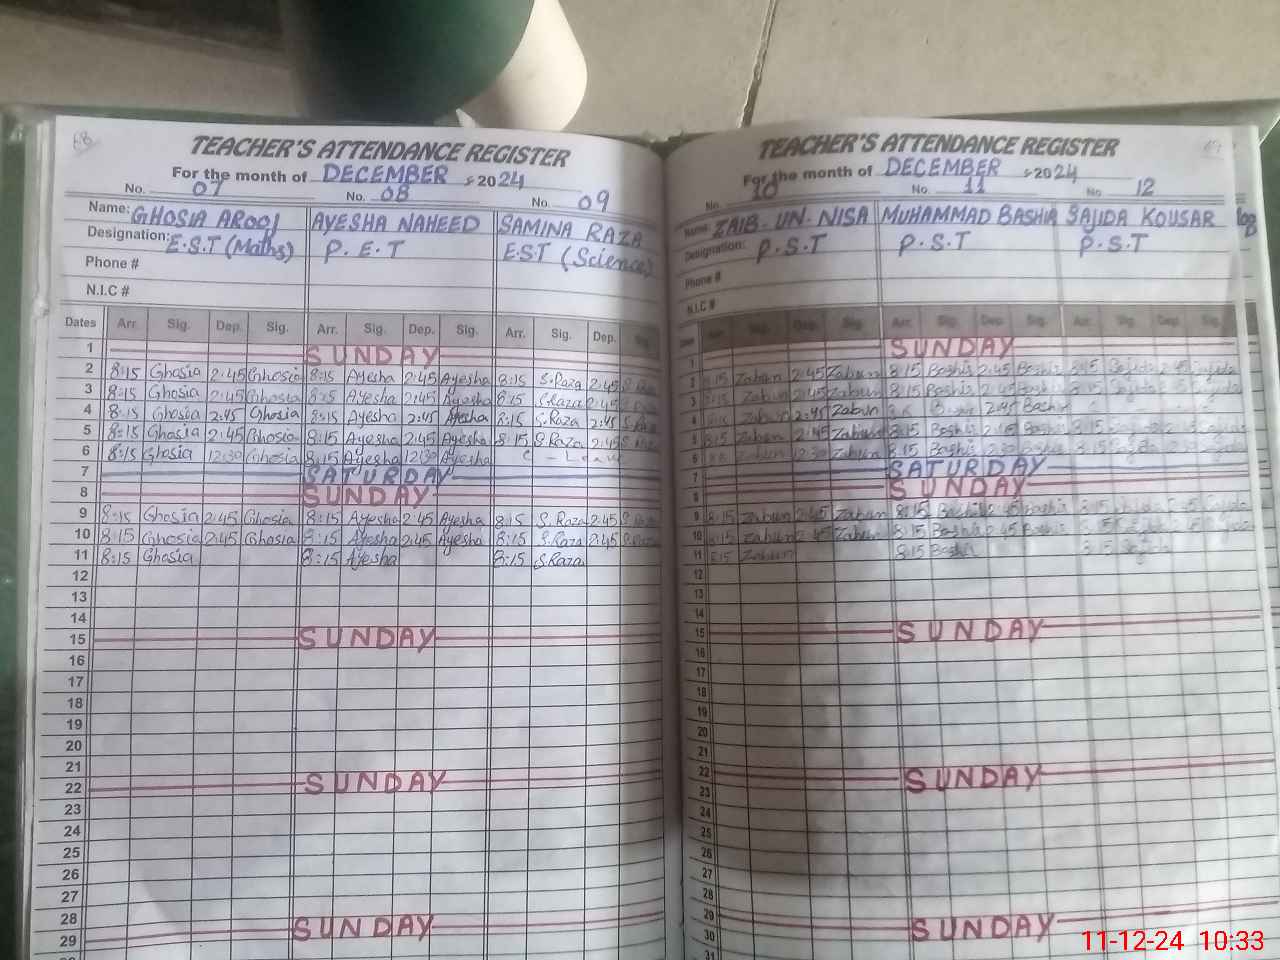 68
TEACHER'S ATTENDANCE REGISTER
For the month of DECEMBER 2024
No. 07 No. 08 No. 09
Name: GHOSIA AROOJ AYESHA NAHEED SAMINA RAZA
Designation: E.S.T (Maths) P.E.T E.S.T (Science)
Phone #
N.I.C #
Dates Arr. Sig. Dep. Sig. Arr. Sig. Dep. Sig. Arr. Sig. Dep. Sig.
1 SUNDAY
2 8:15 Ghosia 2:45 Ghosia 8:15 Ayesha 2:45 Ayesha 8:15 S.Raza 2:45
3 8:15 Ghosia 2:45 Ghosia 8:15 Ayesha 2:45 Ayesha 8:15 S.Raza 2:45
4 8:15 Ghosia 2:45 Ghosia 8:15 Ayesha 2:45 Ayesha 8:15 S.Raza 2:45
5 8:15 Ghosia 2:45 Ghosia 8:15 Ayesha 2:45 Ayesha 8:15 S.Raza 2:45
6 8:15 Ghosia 12:30 Ghosia 8:15 Ayesha 12:30 Ayesha Leave
7 SATURDAY
8 SUNDAY
9 8:15 Ghosia 2:45 Ghosia 8:15 Ayesha 2:45 Ayesha 8:15 S.Raza 2:45
10 8:15 Ghosia 2:45 Ghosia 8:15 Ayesha 2:45 Ayesha 8:15 S.Raza 2:45
11 8:15 Ghosia 8:15 Ayesha 8:15 S.Raza
12
13
14
15 SUNDAY
16
17
18
19
20
21
22 SUNDAY
23
24
25
26
27
28
29 SUNDAY
TEACHER'S ATTENDANCE REGISTER
For the month of DECEMBER 2024
No. 10 No. 11 No. 12
Name: ZAIB-UN-NISA MUHAMMAD BASHIR SAJIDA KOUSAR
Designation: P.S.T P.S.T P.S.T
Phone #
N.I.C #
Arr. Sig. Dep. Sig. Arr. Sig. Dep. Sig. Arr. Sig. Dep. Sig.
1 SUNDAY
2 8:15 Zabun 2:45 Zabun 8:15 Bashir 2:45 Bashir 8:15 Sajida
3 8:15 Zabun 2:45 Zabun 8:15 Bashir 2:45 Bashir 8:15 Sajida
4 Zabun 2:45 Zabun 2:45 Bashir
5 8:15 Zabun 2:45 Zabun 8:15 Bashir 2:45 Bashir 8:15
6 Zabun 12:30 Zabun 8:15 Bashir
7 SATURDAY
8 SUNDAY
9 8:15 Zabun 2:45 Zabun 8:15 Bashir 2:45 Bashir
10 8:15 Zabun 2:45 Zabun 8:15 Bashir 2:45 Bashir
11 8:15 Zabun 8:15 Bashir
12
13
14
15 SUNDAY
16
17
18
19
20
21
22 SUNDAY
23
24
25
26
27
28
29 SUNDAY
30
31
11-12-24 10:33